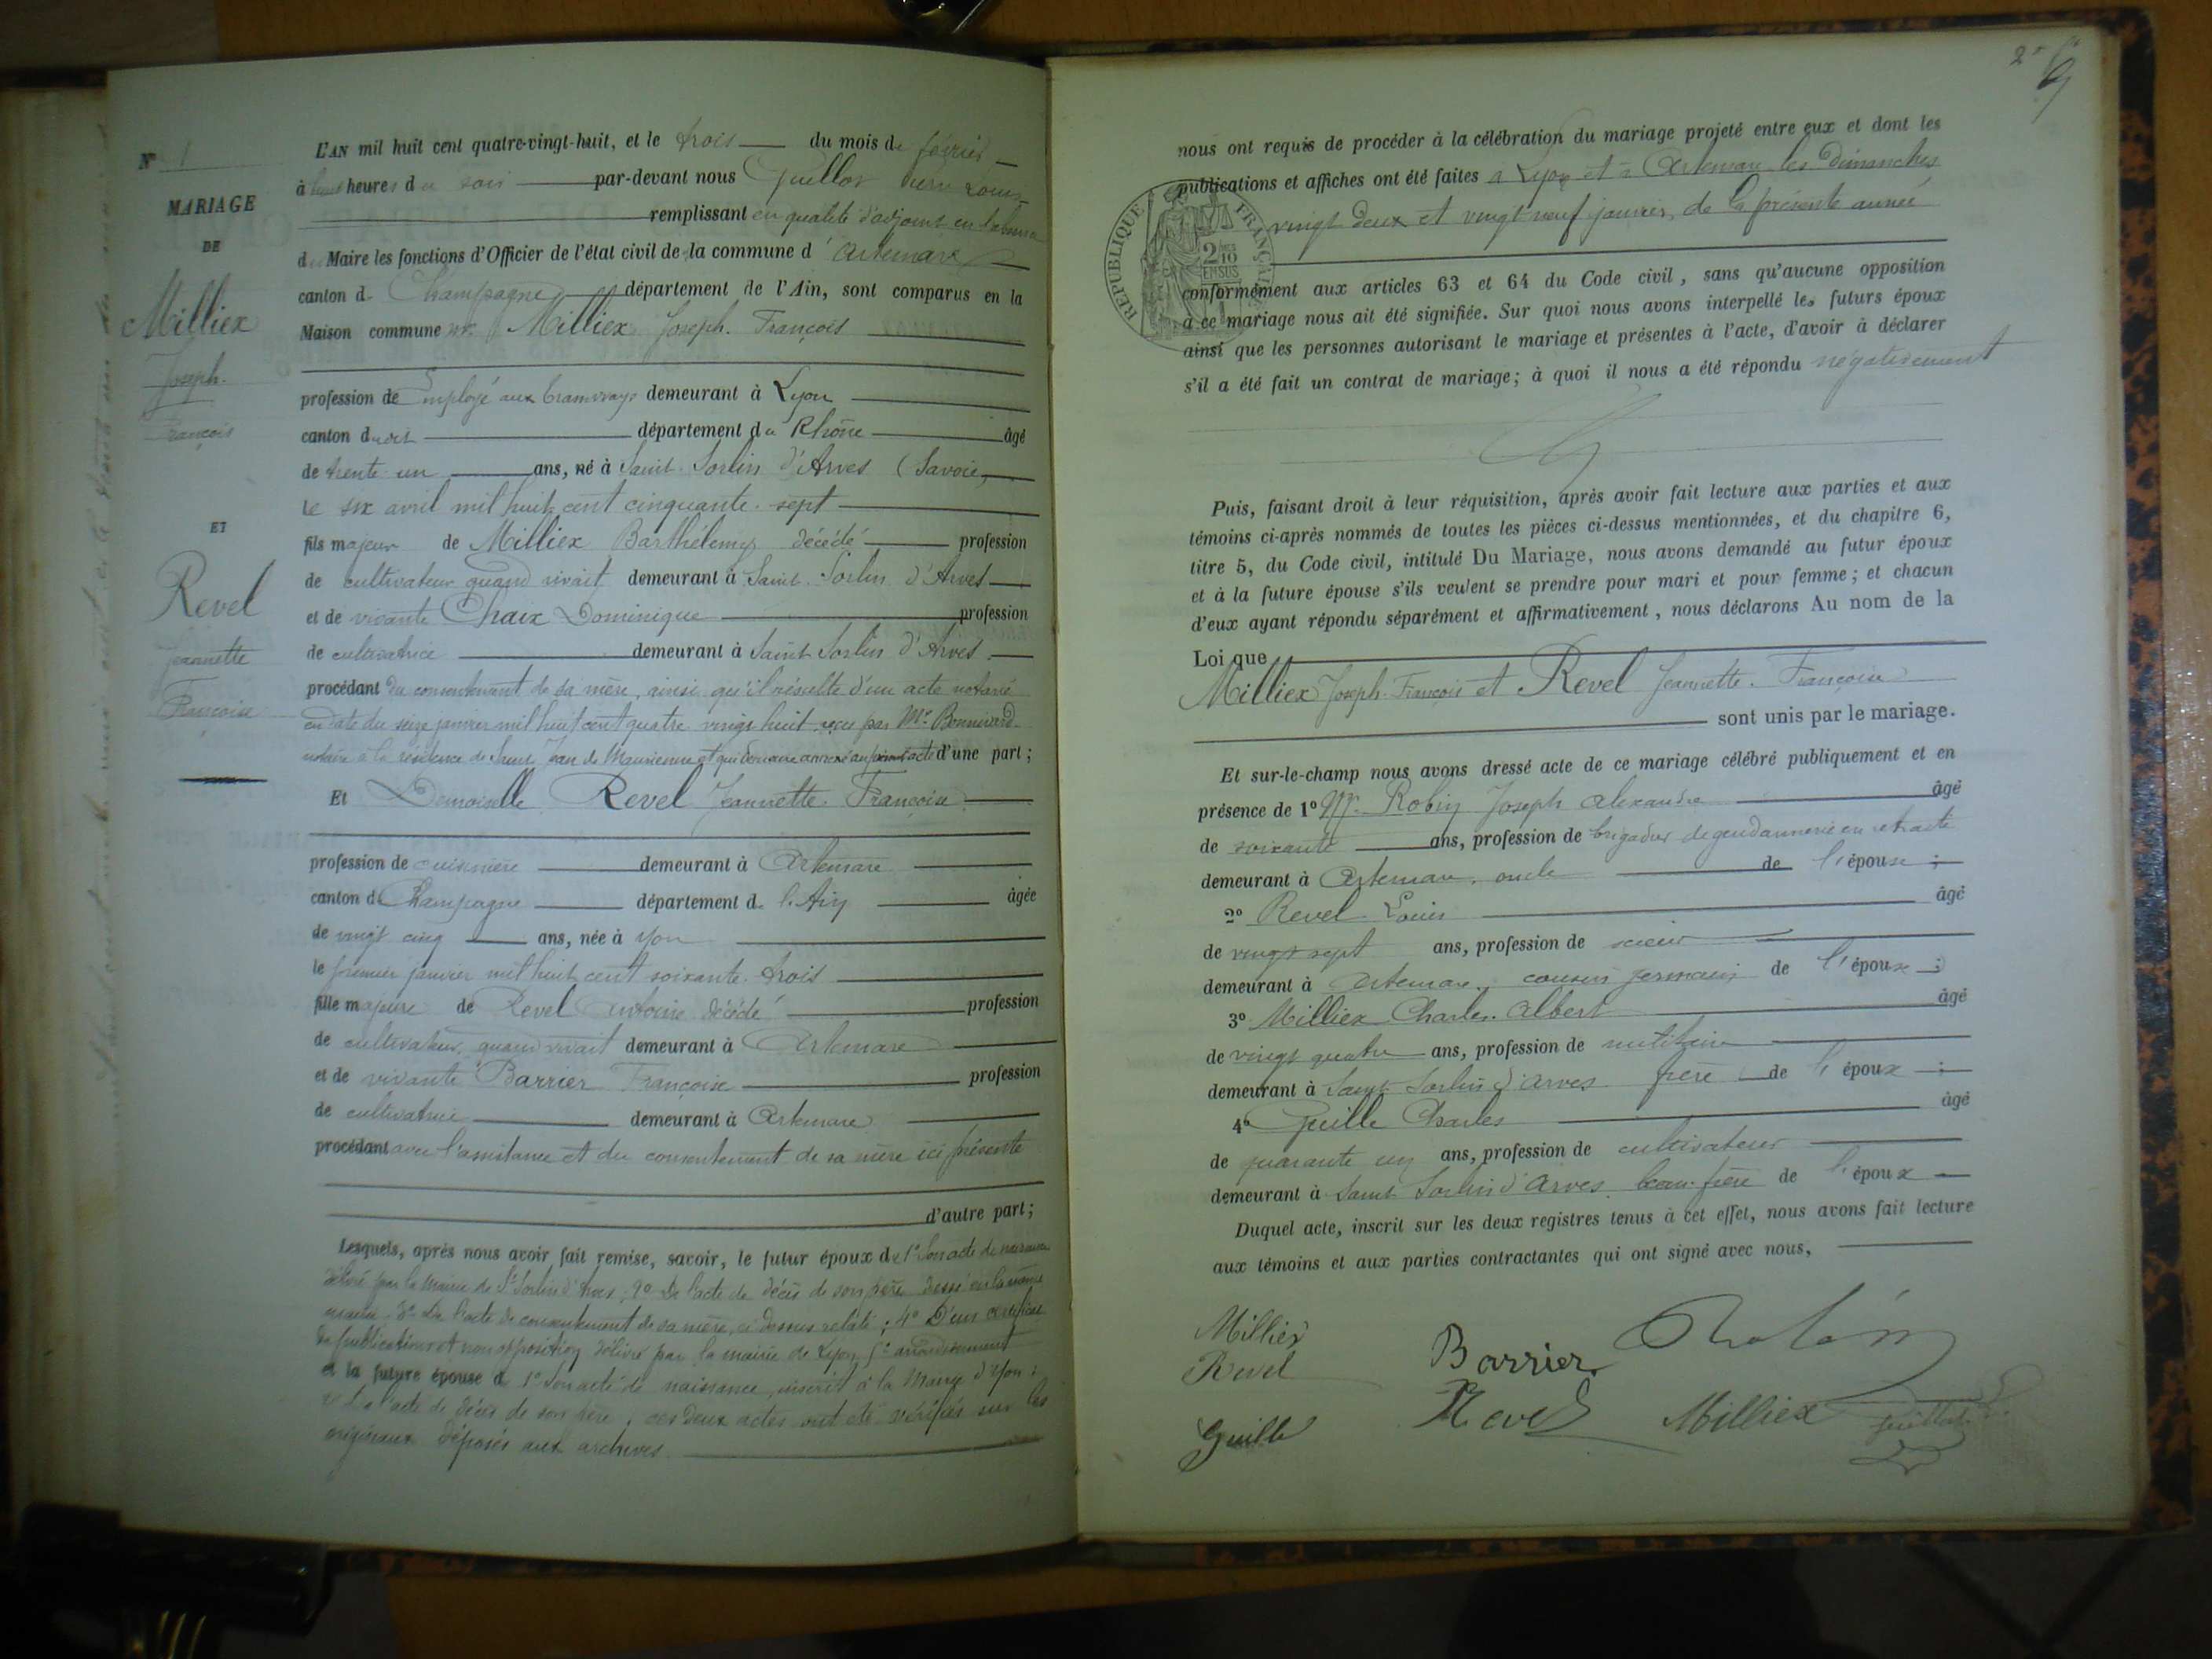 N° 1
MARIAGE
DE
Milliex
Joseph.
François
ET
Revel
Jeannette
Françoise
L'AN mil huit cent quatre-vingt-huit, et le trois du mois de février
à huit heures du soir par-devant nous Guillot Pierre Louis
remplissant en qualité d'adjoint en l'absence
du Maire les fonctions d'Officier de l'état civil de la commune d'Artemare
canton de Champagne département de l'Ain, sont comparus en la
Maison commune Mr. Milliex Joseph. François
profession de Employé aux tramways demeurant à Lyon
canton dudit département du Rhône âgé
de trente un ans, né à Saint Sorlin d'Arves (Savoie)
le six avril mil huit cent cinquante. sept
fils majeur de Milliex Barthélemy décédé profession
de cultivateur quand vivait demeurant à Saint Sorlin d'Arves
et de vivante Chaix Dominique profession
de cultivatrice demeurant à Saint Sorlin d'Arves
procédant du consentement de sa mère, ainsi qu'il résulte d'un acte notarié
en date du seize janvier mil huit cent quatre vingt huit reçu par Me. Bonnivard
notaire à la résidence de Saint Jean de Maurienne et qui demeure annexé au présent acte d'une part ;
Et Demoiselle Revel Jeannette. Françoise
profession de cuisinière demeurant à Artemare
canton de Champagne département de l'Ain âgée
de vingt cinq ans, née à Yon
le premier janvier mil huit cent soixante. trois
fille majeure de Revel Antoine décédé profession
de cultivateur, quand vivait demeurant à Artemare
et de vivante Barrier Françoise profession
de cultivatrice demeurant à Artemare
procédant avec l'assistance et du consentement de sa mère ici présente
d'autre part ;
Lesquels, après nous avoir fait remise, savoir, le futur époux de 1° Son acte de naissance
délivré par la mairie de St Sorlin d'Arves ; 2° De l'acte de décès de son père dressé en la même
mairie. 3° De l'acte de consentement de sa mère, ci dessus relaté ; 4° D'un certificat
de publication et non opposition délivré par la mairie de Lyon, arrondissement
et la future épouse de 1° Son acte de naissance, inscrit à la Mairie d'Yon ;
2° De l'acte de décès de son père, ces deux actes ont été vérifiés sur les
originaux déposés aux archives
2e
nous ont requis de procéder à la célébration du mariage projeté entre eux et dont les
publications et affiches ont été faites à Lyon et à Artemare les Dimanches
vingt deux et vingt neuf janvier, de la présente année
RÉPUBLIQUE FRANÇAISE
2/10
EN SUS
conformément aux articles 63 et 64 du Code civil, sans qu'aucune opposition
à ce mariage nous ait été signifiée. Sur quoi nous avons interpellé les futurs époux
ainsi que les personnes autorisant le mariage et présentes à l'acte, d'avoir à déclarer
s'il a été fait un contrat de mariage ; à quoi il nous a été répondu négativement
Puis, faisant droit à leur réquisition, après avoir fait lecture aux parties et aux
témoins ci-après nommés de toutes les pièces ci-dessus mentionnées, et du chapitre 6,
titre 5, du Code civil, intitulé Du Mariage, nous avons demandé au futur époux
et à la future épouse s'ils veulent se prendre pour mari et pour femme ; et chacun
d'eux ayant répondu séparément et affirmativement, nous déclarons Au nom de la
Loi que
Milliex Joseph. François et Revel Jeannette. Françoise
sont unis par le mariage.
Et sur-le-champ nous avons dressé acte de ce mariage célébré publiquement et en
présence de 1° Mr. Robin Joseph Alexandre âgé
de soixante ans, profession de brigadier de gendarmerie en retraite
demeurant à Artemare, oncle de l'épouse ;
2° Revel Louis âgé
de vingt sept ans, profession de scieur
demeurant à Artemare, cousin germain de l'épouse ;
3° Milliex Charles. Albert âgé
de vingt quatre ans, profession de militaire
demeurant à Saint Sorlin d'Arves frère de l'époux ;
4° Guille Charles âgé
de quarante un ans, profession de cultivateur
demeurant à Saint Sorlin d'Arves, beau-frère de l'époux
Duquel acte, inscrit sur les deux registres tenus à cet effet, nous avons fait lecture
aux témoins et aux parties contractantes qui ont signé avec nous,
Milliex
Revel
Barrier
Robin
Guille
Revel
Milliex
Guillot